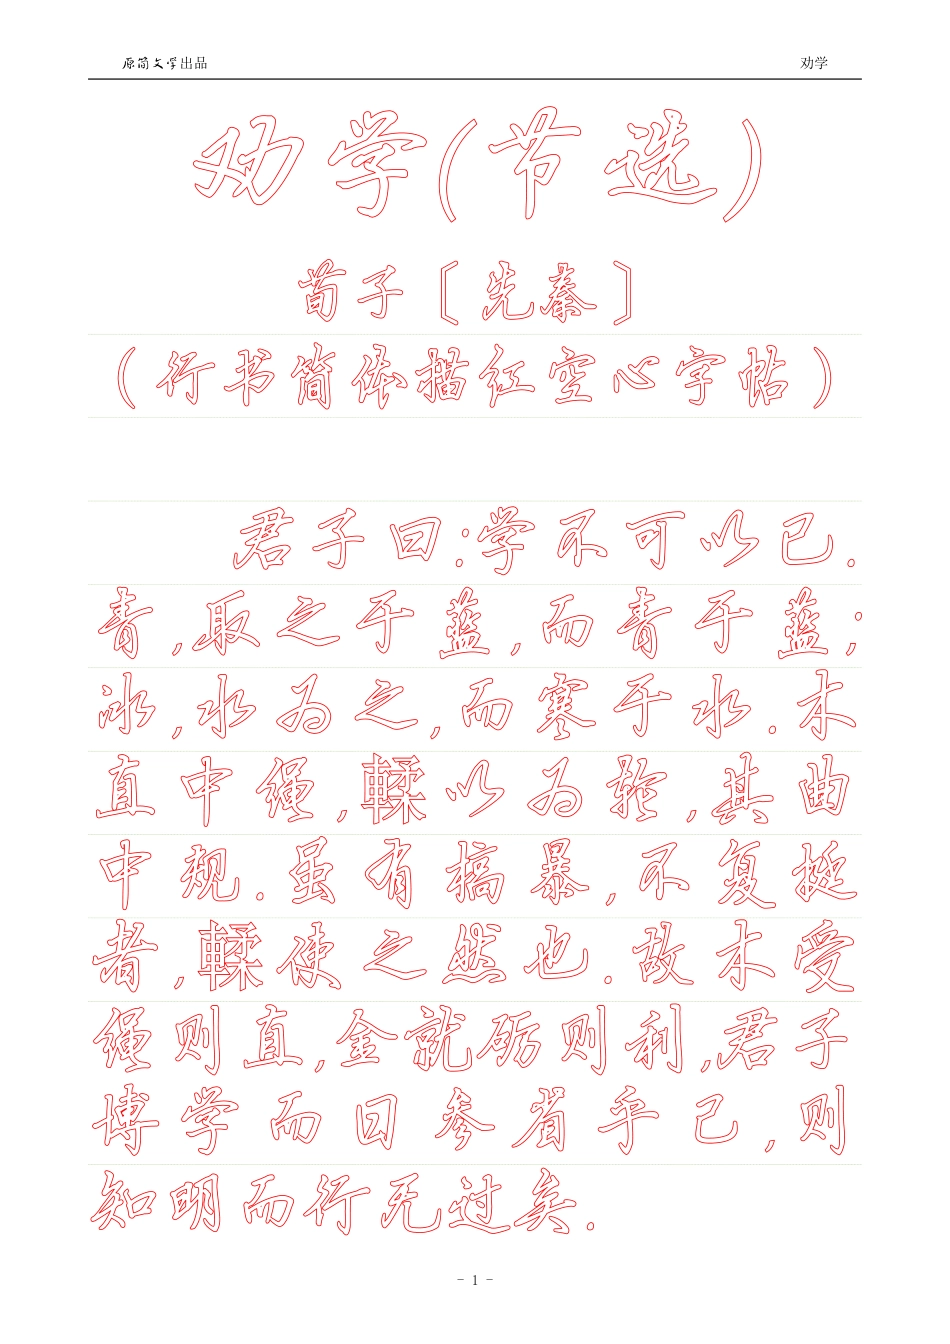 原简文学出品 劝学
劝学(节选)
荀子〔先秦〕
(行书简体描红空心字帖)
君子曰:学不可以已.
青,取之于蓝,而青于蓝;
冰,水为之,而寒于水.木
直中绳,輮以为轮,其曲
中规.虽有槁暴,不复挺
者,輮使之然也.故木受
绳则直,金就砺则利,君子
博学而日参省乎己,则
知明而行无过矣.
- 1 -